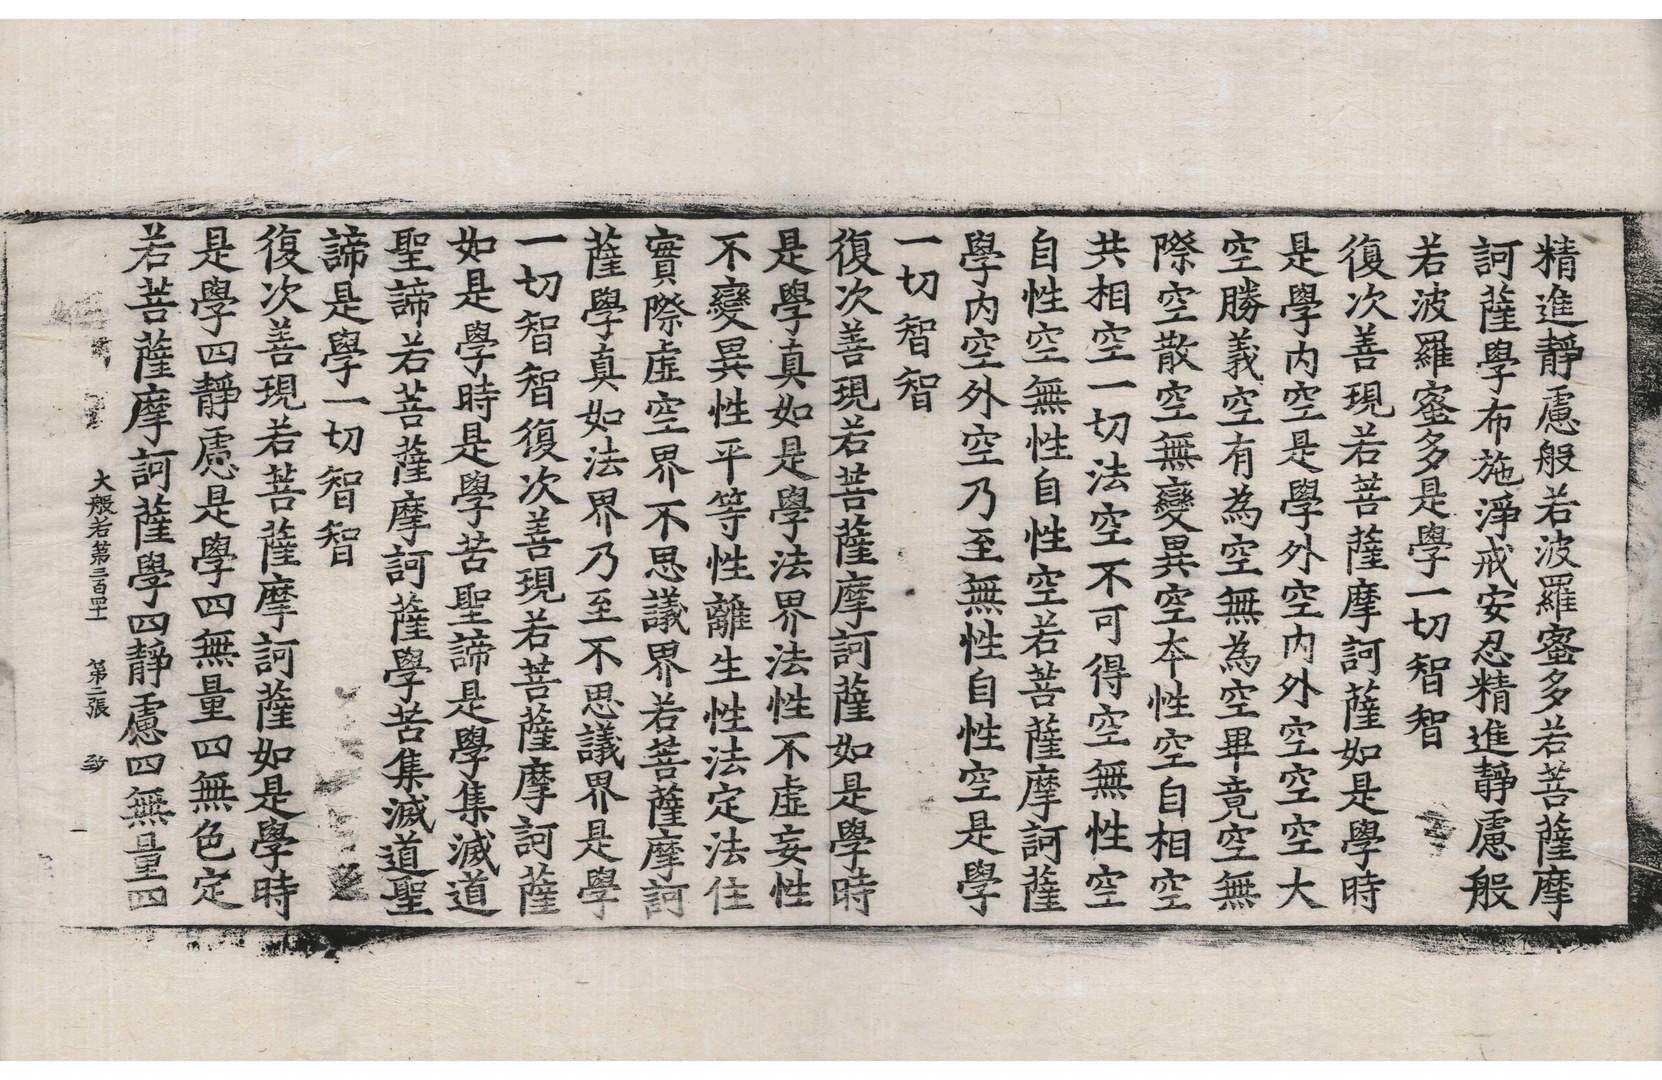 精進靜慮般若波羅蜜多若菩薩摩
訶薩學布施淨戒安忍精進靜慮般
若波羅蜜多是學一切智智
復次善現若菩薩摩訶薩如是學時
是學內空是學外空內外空空空大
空勝義空有為空無為空畢竟空無
際空散空無變異空本性空自相空
共相空一切法空不可得空無性空
自性空無性自性空若菩薩摩訶薩
學內空外空乃至無性自性空是學
一切智智
復次善現若菩薩摩訶薩如是學時
是學真如是學法界法性不虛妄性
不變異性平等性離生性法定法住
實際虛空界不思議界若菩薩摩訶
薩學真如法界乃至不思議界是學
一切智智復次善現若菩薩摩訶薩
如是學時是學苦聖諦是學集滅道
聖諦若菩薩摩訶薩學苦集滅道聖
諦是學一切智智
復次善現若菩薩摩訶薩如是學時
是學四靜慮是學四無量四無色定
若菩薩摩訶薩學四靜慮四無量四
大般若第三百四十一 第二張